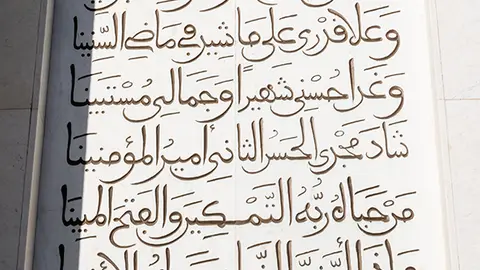 وَعَلَا قَدْرِي عَلَى مَا شِيدَ فِي مَاضِي السِّنِينَا
وَغَدَا حُسْنِي شَهِيرًا وَجَمَالِي مُسْتَبِينَا
شَادَ مَجْدِي الحَسَنُ الثَّانِي أَمِيرُ المُؤْمِنِينَا
مَنْ حَبَاهُ رَبُّهُ التَّمْكِينَ وَالفَتْحَ المُبِينَا